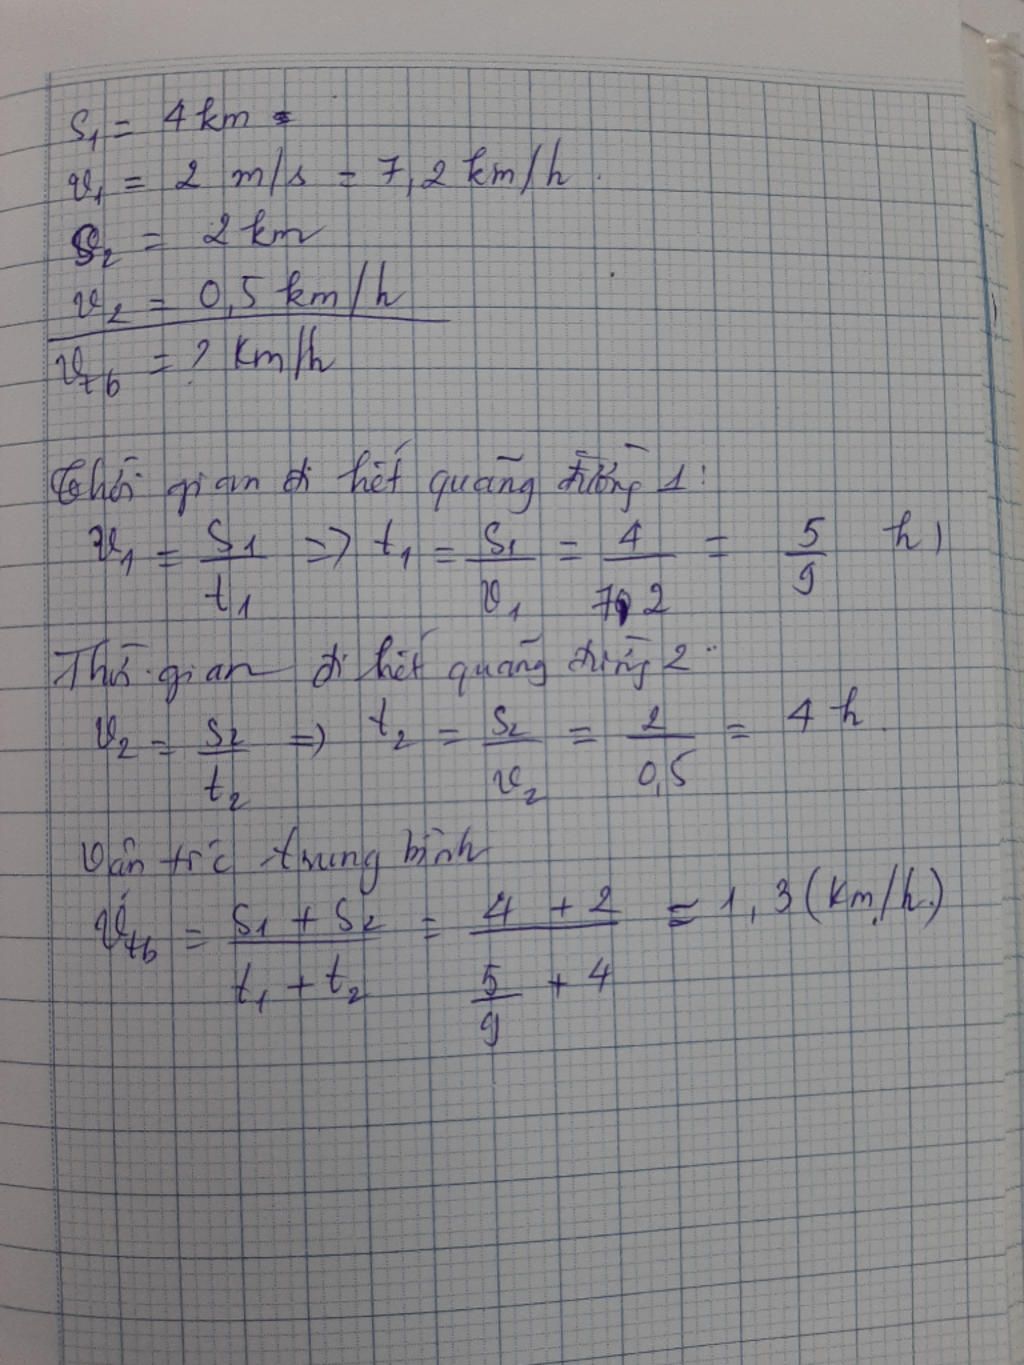 S₁ = 4 km
v₁ = 2 m/s = 7,2 km/h.
S₂ = 2 km
v₂ = 0,5 km/h
v_tb = ? km/h
Thời gian đi hết quãng đường 1:
v₁ = S₁/t₁ => t₁ = S₁/v₁ = 4/7,2 = 5/9 h)
Thời gian đi hết quãng đường 2:
v₂ = S₂/t₂ => t₂ = S₂/v₂ = 2/0,5 = 4 h.
Vận tốc trung bình
v_tb = (S₁ + S₂)/(t₁ + t₂) = (4 + 2)/(5/9 + 4) = 1,3 (km/h.)